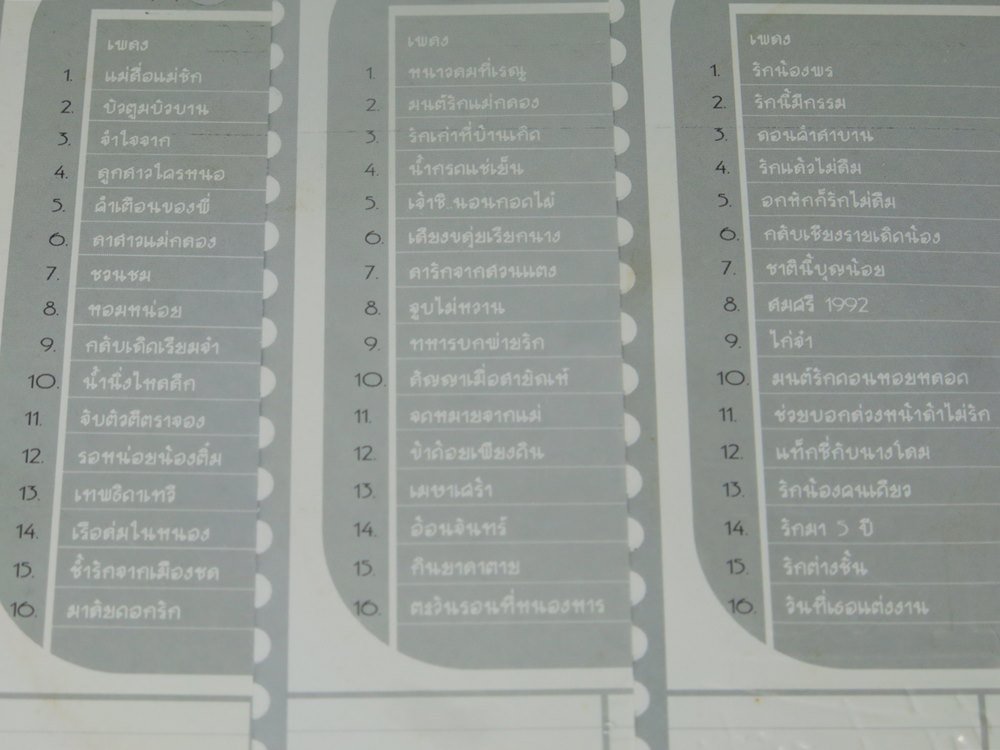 เพลง
1. แม่สื่อแม่ชัก
2. บัวตูมบัวบาน
3. จำใจจาก
4. ลูกสาวใครหนอ
5. คำเตือนของพี่
6. ลาสาวแม่กลอง
7. ชวนชม
8. หอมหน่อย
9. กลับเถิดเรียมจ๋า
10. น้ำนิ่งไหลลึก
11. จับตัวตีตราจอง
12. รอหน่อยน้องติ๋ม
13. เทพธิดาเทวี
14. เรือล่มในหนอง
15. ช้ำรักจากเมืองชล
16. มาลัยดอกรัก
เพลง
1. หนาวลมที่เรณู
2. มนต์รักแม่กลอง
3. รักเก่าที่บ้านเกิด
4. น้ำกรดแช่เย็น
5. เจ้าชิ..นอนกอดไผ่
6. เสียงขลุ่ยเรียกนาง
7. ลารักจากสวนแตง
8. จูบไม่หวาน
9. ทหารบกพ่ายรัก
10. สัญญาเมื่อสายัณห์
11. จดหมายจากแม่
12. ข้าด้อยเพียงดิน
13. เมษาเศร้า
14. อ้อนจันทร์
15. กินยาตาย
16. ตะวันรอนที่หนองหาร
เพลง
1. รักน้องพร
2. รักนี้มีกรรม
3. ดอนคำลาบาน
4. รักแล้วไม่ลืม
5. อกหักก็รักไม่ลืม
6. กลับเชียงรายเถิดน้อง
7. ชาตินี้บุญน้อย
8. สมศรี 1992
9. ไก่จ๋า
10. มนต์รักดอนหอยหลอด
11. ช่วยบอกล่วงหน้าถ้าไม่รัก
12. แท็กซี่กับนางโลม
13. รักน้องคนเดียว
14. รักมา 5 ปี
15. รักต่างชั้น
16. วันที่เธอแต่งงาน